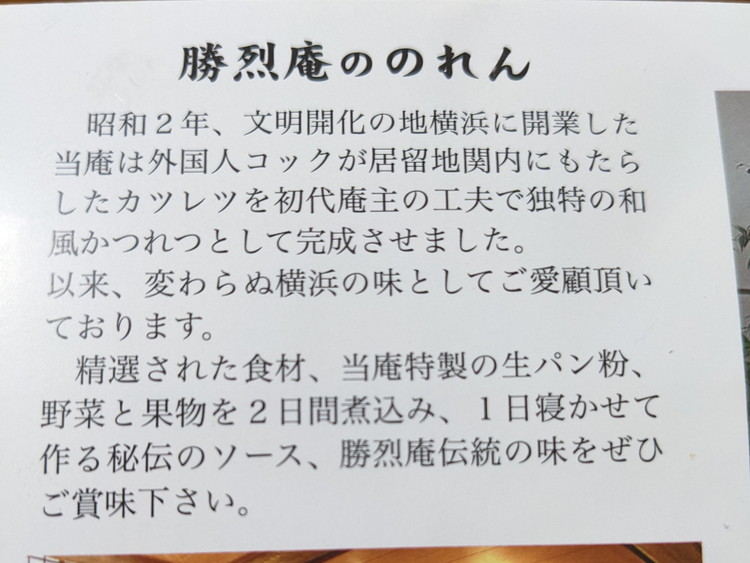 勝烈庵ののれん
昭和２年、文明開化の地横浜に開業した
当庵は外国人コックが居留地関内にもたら
したカツレツを初代庵主の工夫で独特の和
風かつれつとして完成させました。
以来、変わらぬ横浜の味としてご愛顧頂い
ております。
精選された食材、当庵特製の生パン粉、
野菜と果物を２日間煮込み、１日寝かせて
作る秘伝のソース、勝烈庵伝統の味をぜひ
ご賞味下さい。